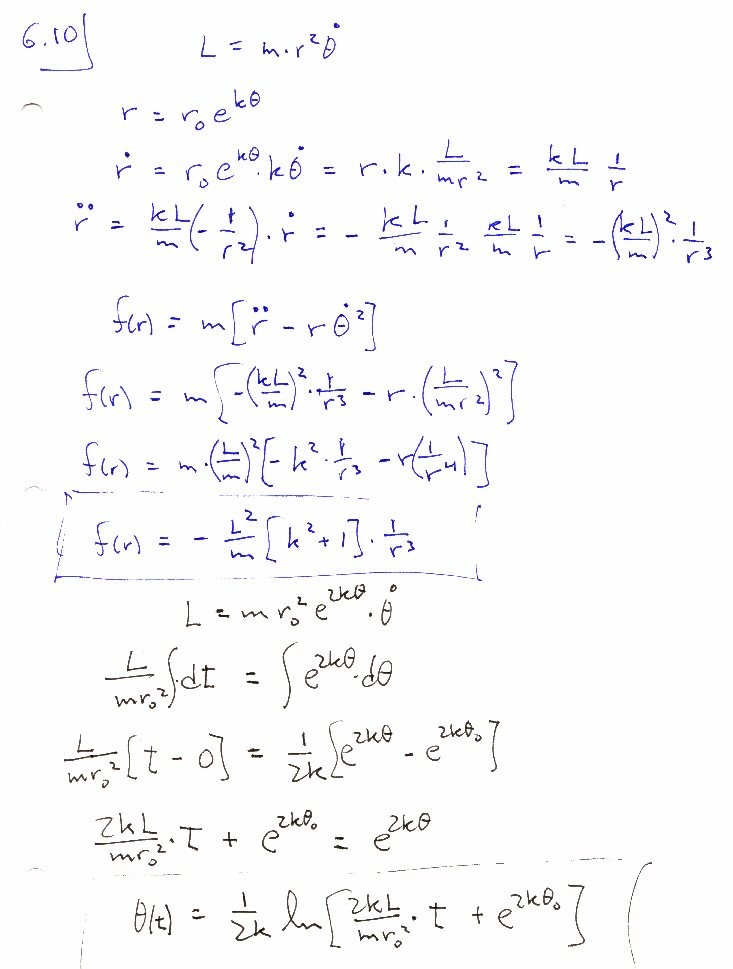 6.10
L = m·r²θ̇
r = r₀e^{kθ}
ṙ = r₀e^{kθ}·kθ̇ = r·k·\frac{L}{mr²} = \frac{kL}{m} \frac{1}{r}
r̈ = \frac{kL}{m}(-\frac{1}{r²})·ṙ = -\frac{kL}{m} \frac{1}{r²} \frac{kL}{m} \frac{1}{r} = -(\frac{kL}{m})²·\frac{1}{r³}
f(r) = m[r̈ - rθ̇²]
f(r) = m[-(\frac{kL}{m})²·\frac{1}{r³} - r·(\frac{L}{mr²})²]
f(r) = m·(\frac{L}{m})²[-k²·\frac{1}{r³} - r(\frac{1}{r⁴})]
f(r) = -\frac{L²}{m}[k²+1]·\frac{1}{r³}
L = mr₀²e^{2kθ}·θ̇
\frac{L}{mr₀²}∫dt = ∫e^{2kθ}·dθ
\frac{L}{mr₀²}[t - 0] = \frac{1}{2k}[e^{2kθ} - e^{2kθ₀}]
\frac{2kL}{mr₀²}·t + e^{2kθ₀} = e^{2kθ}
θ(t) = \frac{1}{2k} ln[\frac{2kL}{mr₀²}·t + e^{2kθ₀}]